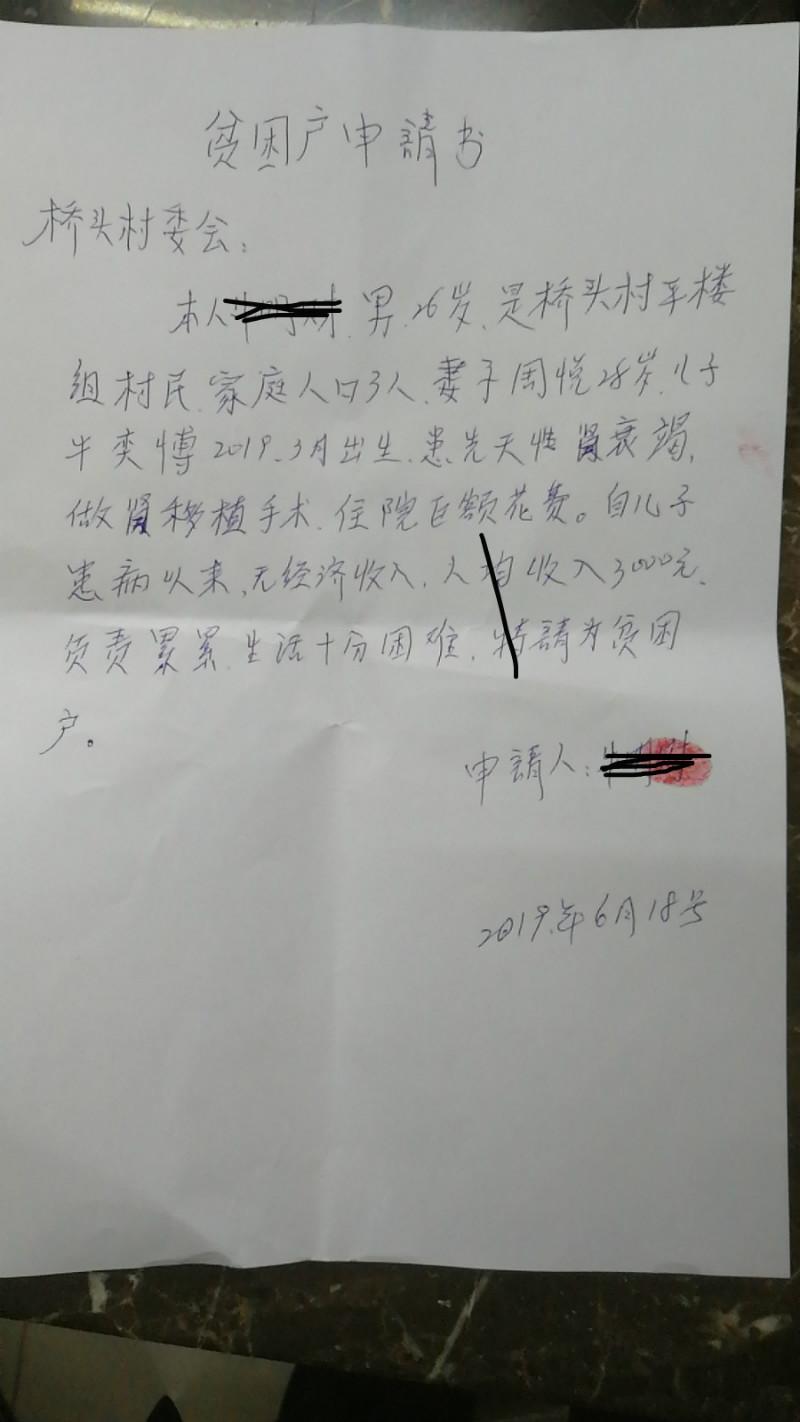 贫困户申請书
桥头村委会:
本人 男.26岁.是桥头村平楼
组村民.家庭人口3人.妻子周悦28岁.儿子
牛奕博2019.3月出生.患先天性肾衰竭,
做肾移植手术.住院巨额花费。自儿子
患病以来,无经济收入,人均收入3000元.
负责累累.生活十分困难,特請为贫困
户。
申請人:
2019年6月18号